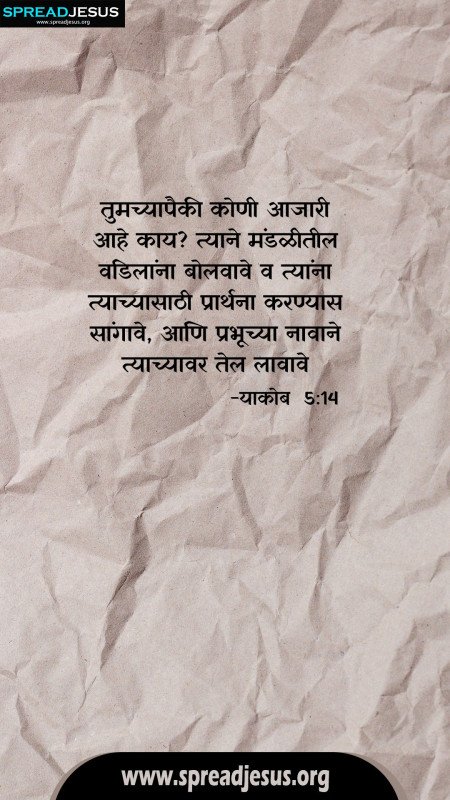 SPREADJESUS
www.spreadjesus.org
तुमच्यापैकी कोणी आजारी
आहे काय? त्याने मंडळीतील
वडिलांना बोलवावे व त्यांना
त्याच्यासाठी प्रार्थना करण्यास
सांगावे, आणि प्रभूच्या नावाने
त्याच्यावर तेल लावावे
-याकोब 5:14
www.spreadjesus.org